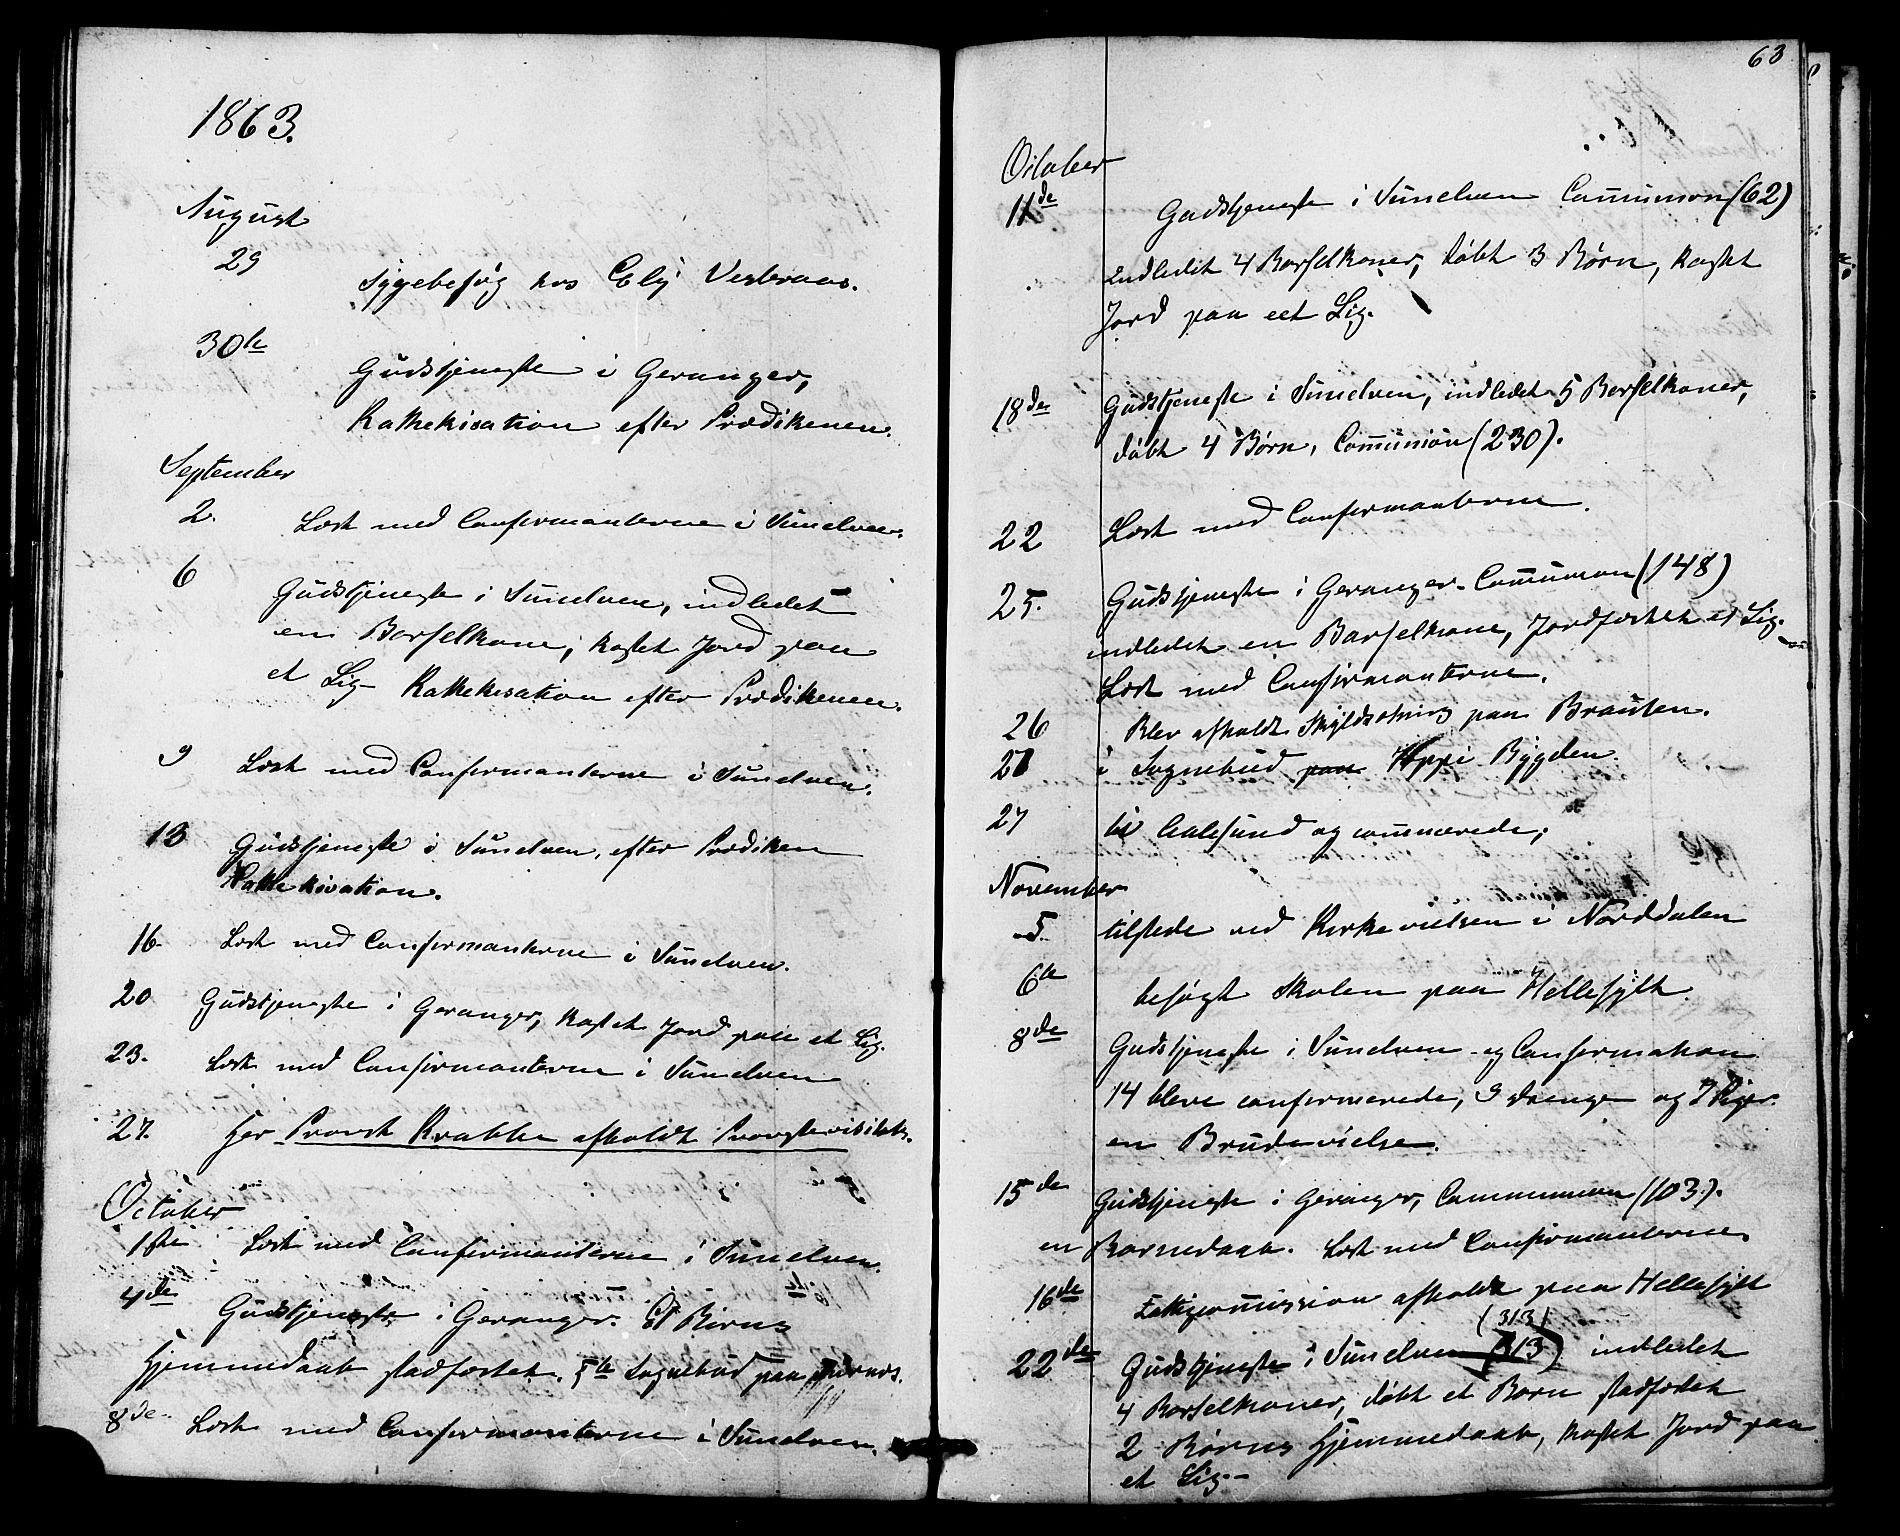 1863.
August
29 Sygebesøg hos Elij Vesteraas.
30te Gudstjeneste i Geranger,
Kathekisation efter Prædikenen.
September
2. Læst med Confirmanterne i Sunelven.
6 Gudstjeneste i Sunelven, indledet
en Barselkone, kastet Jord paa
et Lig Kathekisation efter Prædikenen.
9 Læst med Confirmanterne i Sunelven.
13 Gudstjeneste i Sunelven, efter Prædiken
Kathekisation.
16. Læst med Confirmanterne i Sunelven.
20 Gudstjeneste i Geranger, kastet Jord paa et Lig.
23. Læst med Confirmanterne i Sunelven
27. Her Provst Krabbe afholdt Provstevisitats.
October
1ste Læst med Confirmanterne i Sunelven.
4de Gudstjeneste i Geranger. Et Børns
Hjemmedaab stadfæstet. 5te Sognebud paa
8de Læst med Confirmanterne i Sunelven.
63
October
11de Gudstjeneste i Sunelven Communion (62)
indledet 4 Barselkoner, døbt 3 Børn, kastet
Jord paa eet Lig.
18de Gudstjeneste i Sunelven, indledet 5 Barselkoner,
døbt 4 Børn, Communion (230).
22 Læst med Confirmanterne.
25. Gudstjeneste i Geranger. Communion (148)
indledet en Barselkone, Jordfæstet et Lig.
Læst med Confirmanterne.
26 Blev afholdt Skyldsætning paa Brauten.
27 i Sognebud paa Oppi Bygden.
27 til Aalesund og
November
5. tilstede ved Kirkevielsen i Norddalen
6te besøgt Skolen paa Hellesylt.
8de Gudstjeneste i Sunelven og Confirmation
14 bleve confirmerede, 9 Drenge og 7 Piger.
en Brudevielse.
15de Gudstjeneste i Geranger, Communion (103).
en Barnedaab. Læst med Confirmanterne.
16de Fattigcommission afholdt paa Hellesylt
(313)
22de Gudstjeneste i Sunelven (313) indledet
4 Barselkoner, døbt et Barn stadfæstet
2 Børns Hjemmedaab, kastet Jord paa
et Lig.